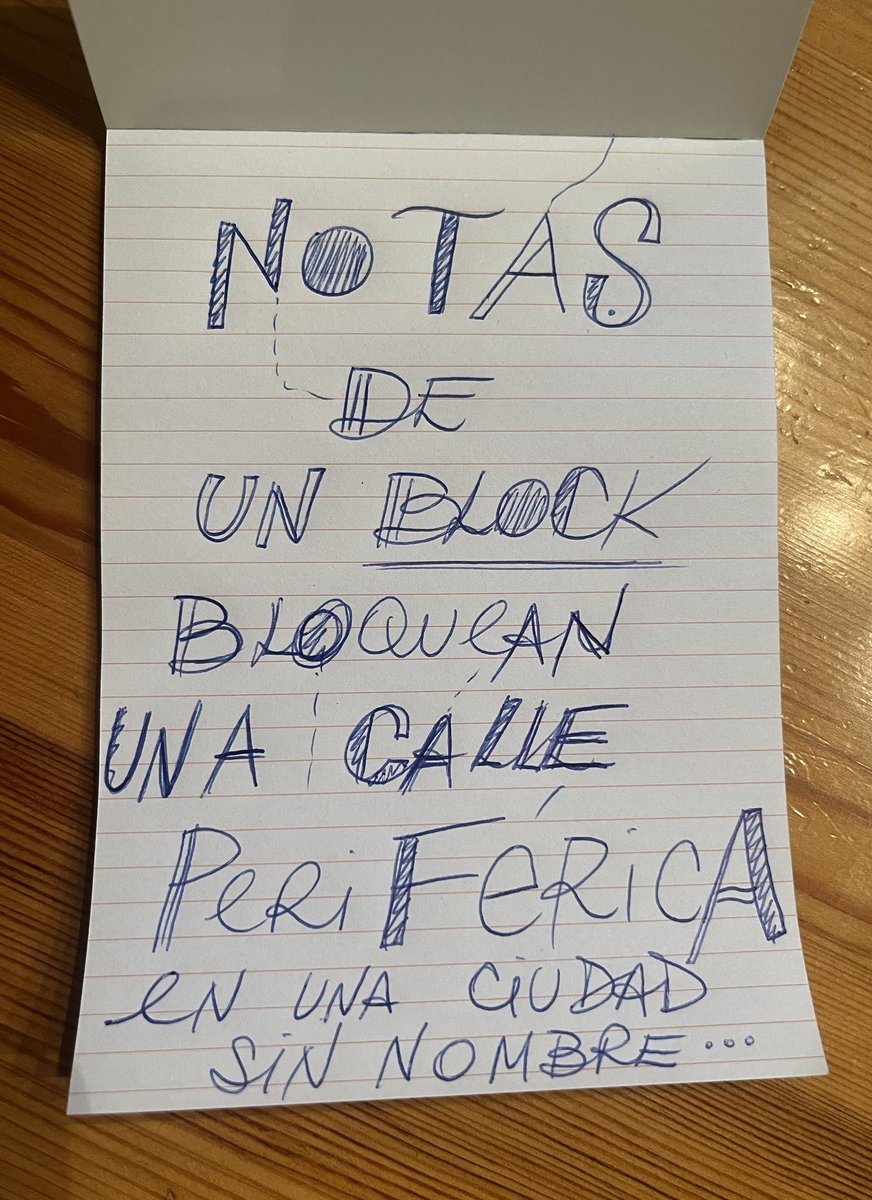 NOTAS
DE
UN BLOCK
BLOQUEAN
UNA CALLE
PERIFÉRICA
EN UNA CIUDAD
SIN NOMBRE...